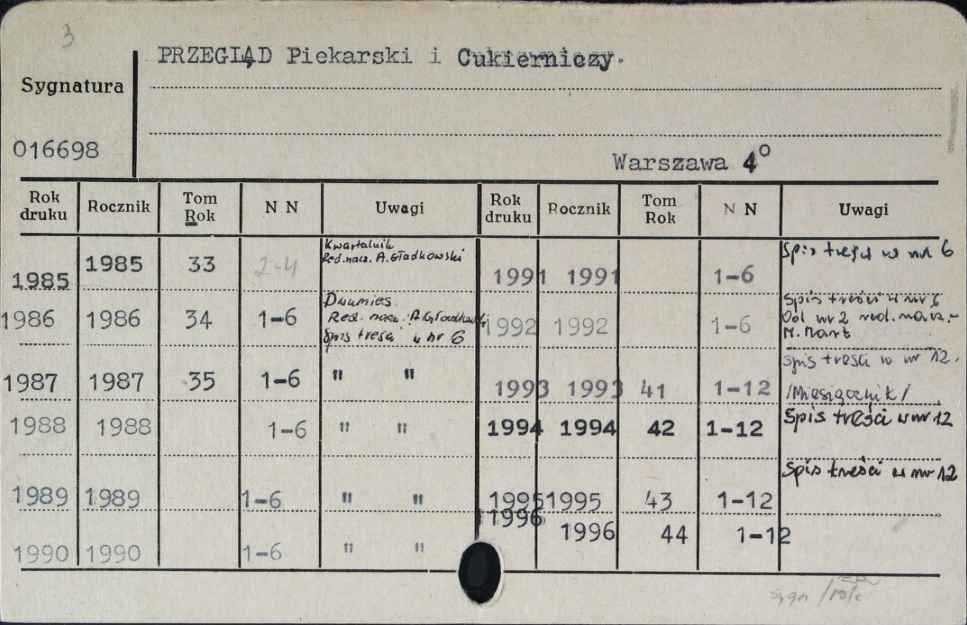 3
PRZEGLĄD Piekarski i Cukierniczy.
Sygnatura
016698
Warszawa 4°
Rok druku Rocznik Tom Rok N N Uwagi Rok druku Rocznik Tom Rok N N Uwagi
1985 1985 33 2-4 Kwartalnik
Red. nacz. A. Gładkowski
1991 1991 1-6 Spis treści w nr 6
1986 1986 34 1-6 Dwumies
Red. nacz. A Gładkowski
Spis treści w nr 6
1992 1992 1-6 Spis treści w nr 6
Od nr 2 red. nacz.-
M. Mart
1987 1987 35 1-6 " "
1993 1993 41 1-12 Spis treści w nr 12.
/Miesięcznik/
1988 1988 1-6 " "
1994 1994 42 1-12 Spis treści w nr 12
1989 1989 1-6 " "
1995 1995 43 1-12 Spis treści w nr 12
1990 1990 1-6 " "
1996 1996 44 1-12
sygn /